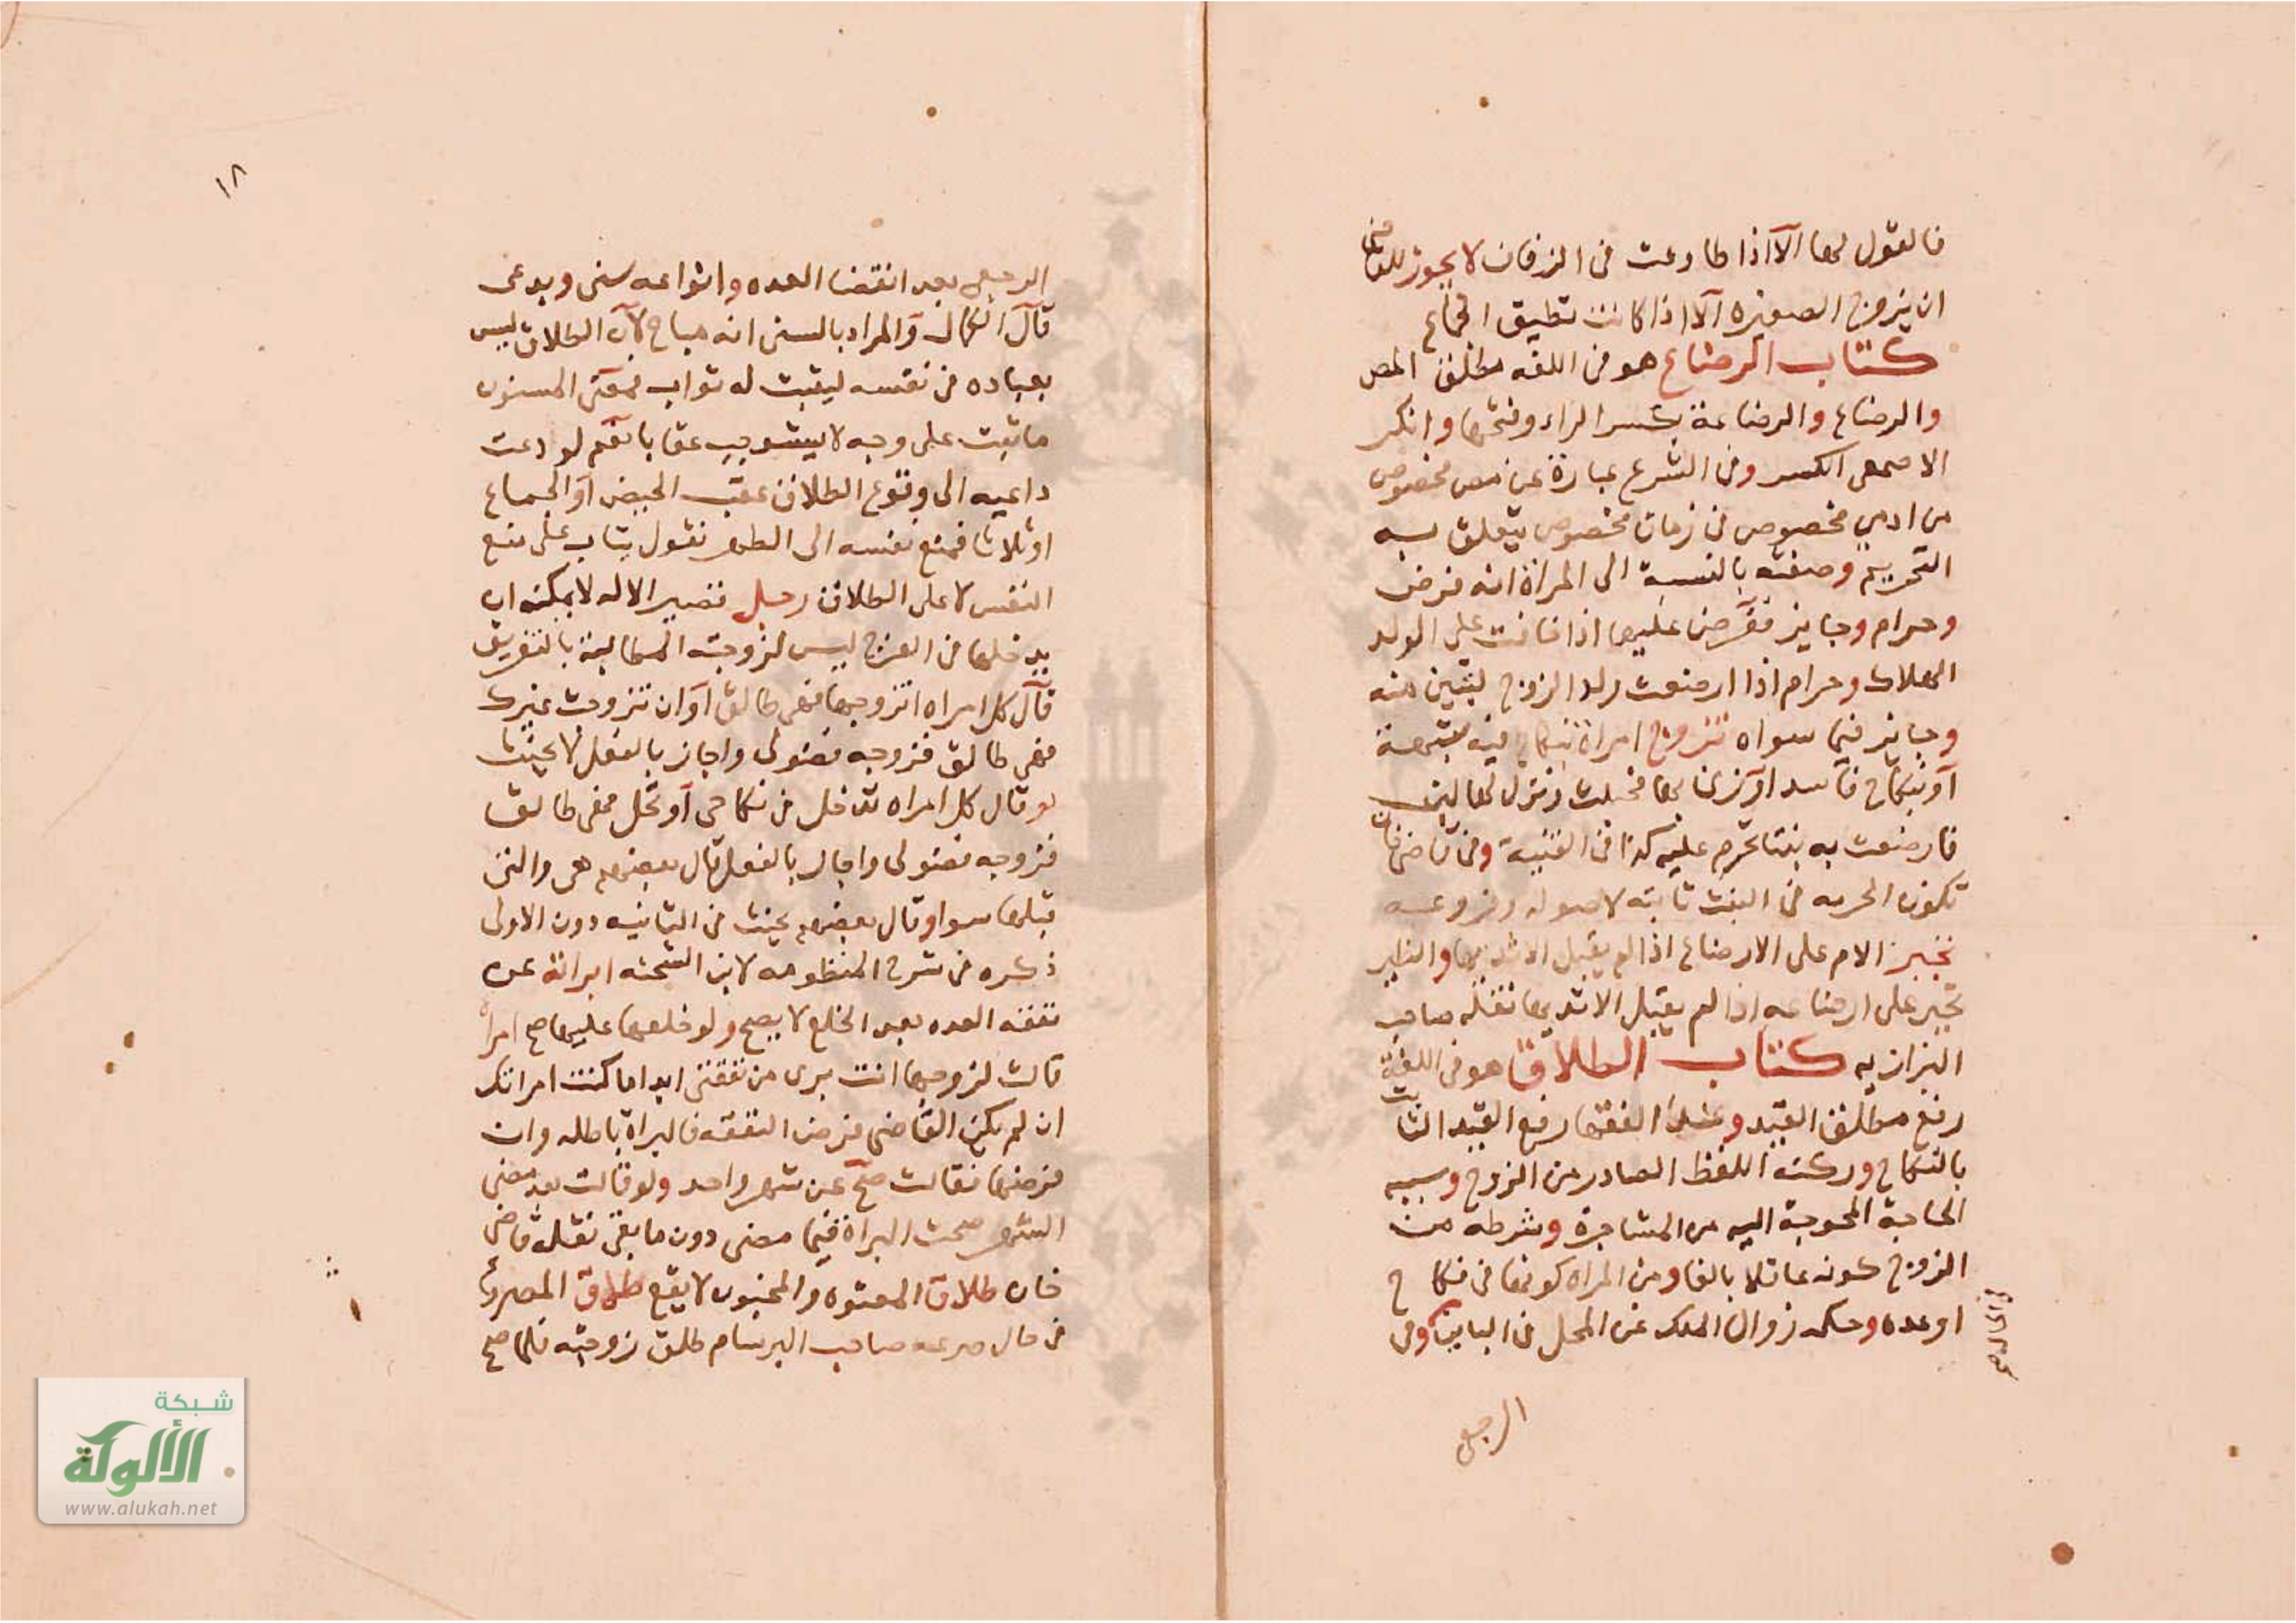 فالقول لها الا اذا طاوعت في الزفاف لا يجوز للقاضي
ان يزوج الصغيره الا اذا كانت تطيق الجماع
كتاب الرضاع هو في اللغه مطلق المص
والرضاع والرضاعة بكسر الراء وفتحها وانكر
الاصمعي الكسر وفي الشرع عبارة عن مص مخصوص
من ادمي مخصوص في زمان مخصوص يتعلق به
التحريم وصفته بالنسبة الى المراة انه فرض
وحرام وجايز ففرض عليها اذا خافت على الولد
الهلاك وحرام اذا ارضعت ولد الزوج لتبين منه
وجايز فيما سواه تزوج امراة بنكاح فيه شبهة
او بنكاح فاسد او زنى بها فحبلت ونزل لها لبن
فارضعت به بنتا تحرم عليه كذا في القنية وفي قاضي خان
تكون الحرمه في البنت ثابته لاصوله وفروعه
تجبر الام على الارضاع اذا لم يقبل الا ثديها والظير
تجبر على ارضاعه اذا لم يقبل الا ثديها نقله صاحب
البزازيه كتاب الطلاق هو في اللغة
رفع مطلق القيد وعند الفقها رفع القيد الثابت
بالنكاح وركنه اللفظ الصادر من الزوج وسببه
الحاجة المحوجة اليه من المشاجرة وشرطه من
الزوج كونه عاقلا بالغا ومن المراه كونها في نكاح
او عده وحكمه زوال الملك عن المحل في الباين وفي
الرجعي
١٨
الرجعي بعد انقضا العده وانواعه سني وبدعي
قال الكمال والمراد بالسني انه مباح لان الطلاق ليس
بعباده في نفسه ليثبت له ثواب فمعنى المسنون
ما ثبت على وجه لا يستوجب عقابا نعم لو دعت
داعيه الى وقوع الطلاق عقب الحيض او الجماع
او ثلاثا فمنع نفسه الى الطهر نقول يثاب على منع
النفس لا على الطلاق رجل قصير الاله لا يمكنه ان
يدخلها في الفرج ليس لزوجته المطالبة بالتفريق
قال كل امراه اتزوجها فهي طالق او ان تزوجت غيرك
فهي طالق فزوجه فضولي واجاز بالفعل لا يحنث
لو قال كل امراه تدخل في نكاحي او تحل فهي طالق
فزوجه فضولي واجاز بالفعل قال بعضهم هي والتي
قبلها سوا وقال بعضهم يحنث في الثانيه دون الاولى
ذكره في شرح المنظومه لابن الشحنه ابراته عن
نفقه العده بعد الخلع لا يصح ولو خلعها عليها صح امراة
قالت لزوجها انت بري من نفقتي ابدا ما كنت امراتك
ان لم يكن القاضي فرض النفقه فالبراة باطله وان
فرضها فقالت صح عن شهر واحد ولو قالت بعد مضي
الشهر صحت البراة فيما مضى دون ما بقي نقله قاضي
خان طلاق المعتوه والمجنون لا يقع طلاق المصروع
في حال صرعه صاحب البرسام طلق زوجته فلما صح
شبكة
الألوكة
www.alukah.net